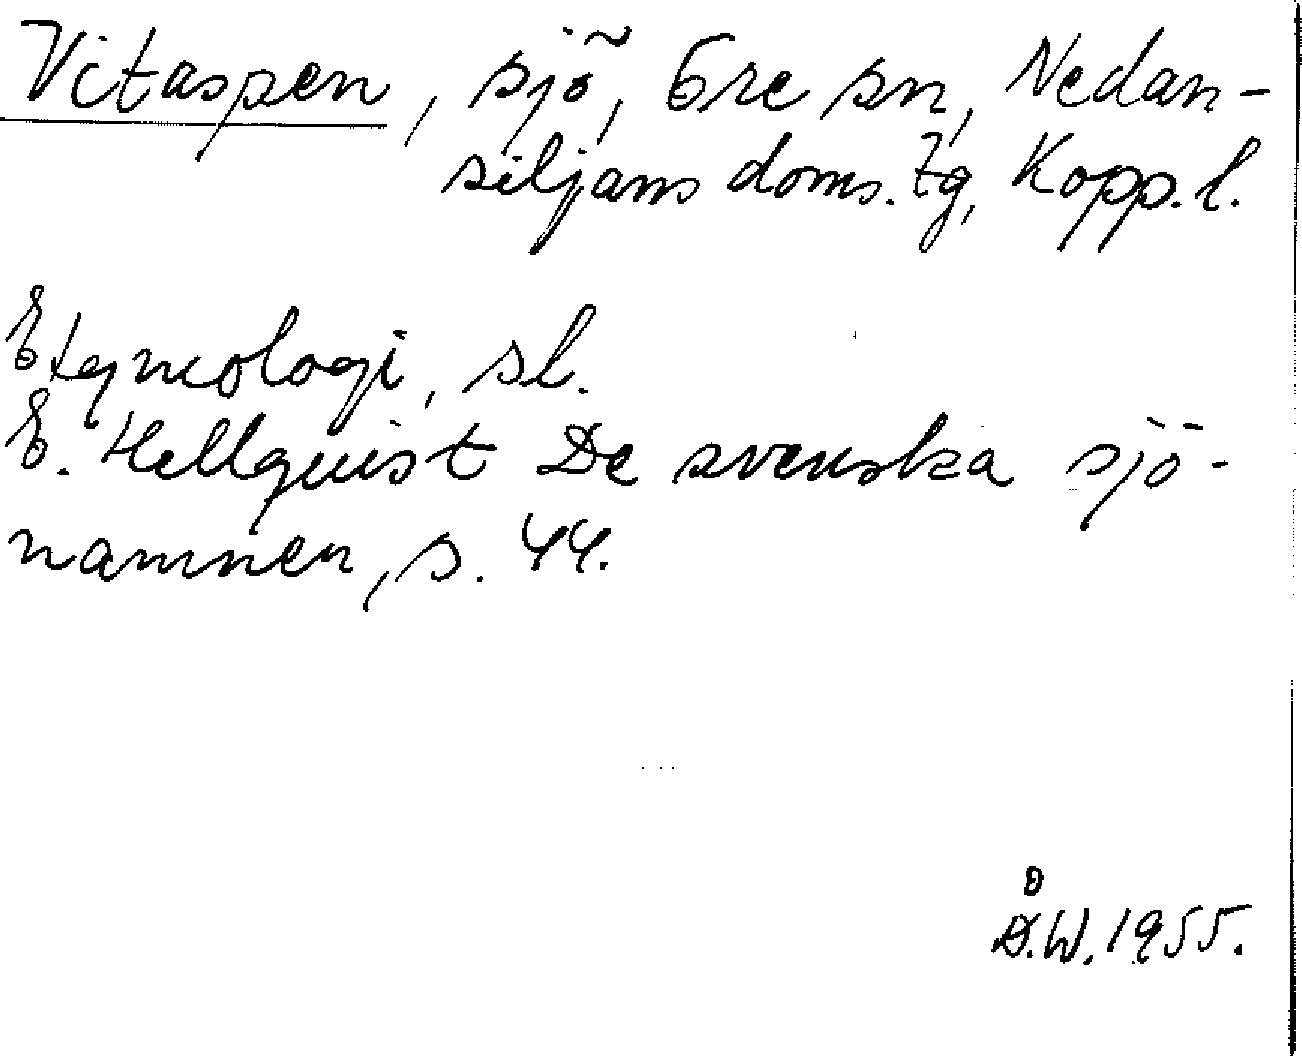 Vitaspen, sjö, Ore sn, Nedan-
siljans doms. tg, Kopp. l.
Etymologi, sl.
E. Hellquist De svenska sjö-
namnen, s. 44.
Å.W. 1955.